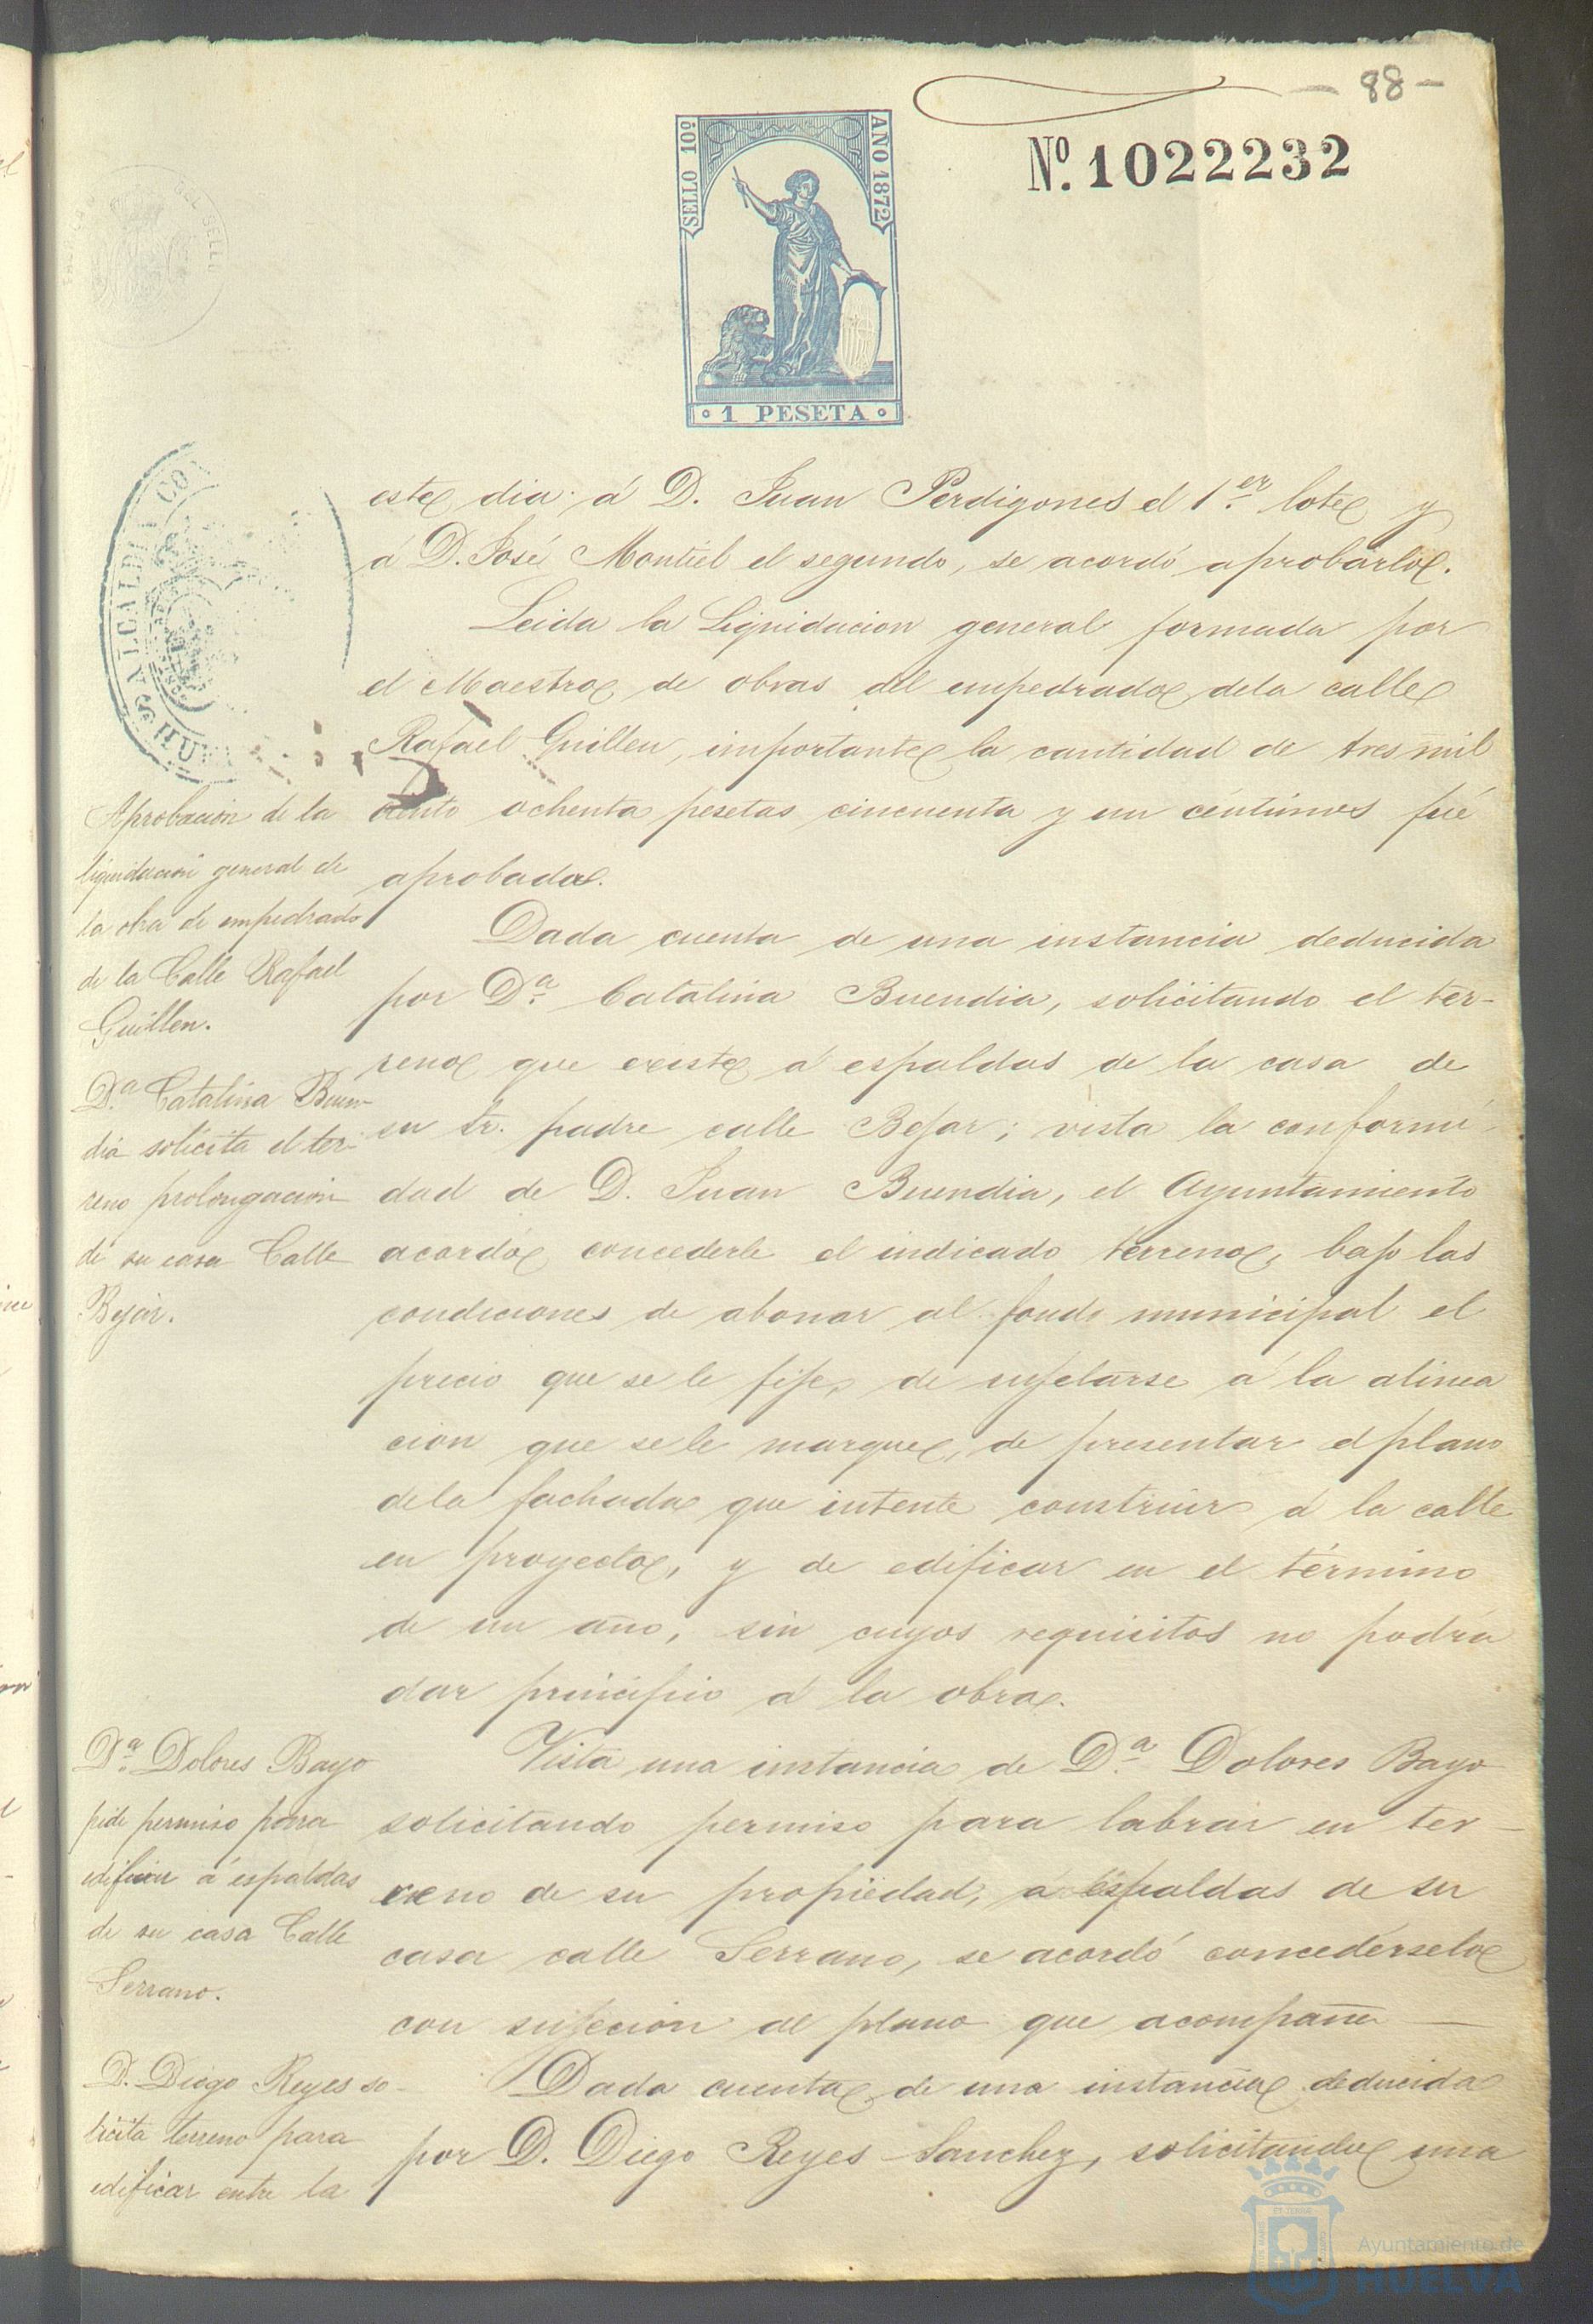 - 88 -
Nº. 1022232
SELLO 10º
AÑO 1872
1 PESETA
ALCALDIA CO
HU
este dia á D. Juan Perdigones el 1.er lote y
á D. José Montiel el segundo, se acordó aprobarlo.
Leida la Liquidacion general formada por
el Maestro de obras del empedrado dela calle
Rafael Guillen, importante la cantidad de tres mil
ciento ochenta pesetas cincuenta y un céntimos fué
aprobada.
Aprobacion de la
liquidacion general de
la obra de empedrado
de la Calle Rafael
Guillen.
Dada cuenta de una instancia deducida
por D.ª Catalina Buendia, solicitando el ter-
reno que existe á espaldas de la casa de
su Sr. padre calle Bejar; vista la conformi-
dad de D. Juan Buendia, el Ayuntamiento
acordó concederle el indicado terreno, bajo las
condiciones de abonar al fondo municipal el
precio que se le fije, de sujetarse á la alinea
cion que se le marque, de presentar el plano
dela fachada que intente construir á la calle
en proyecto, y de edificar en el término
de un año, sin cuyos requisitos no podrá
dar principio á la obra.
D.ª Catalina Buen-
dia solicita el ter-
reno prolongacion
de su casa Calle
Bejar.
Vista una instancia de D.ª Dolores Bayo
solicitando permiso para labrar en ter-
reno de su propiedad, á espaldas de su
casa calle Serrano, se acordó concedérselo
con sujecion al plano que acompaña
D.ª Dolores Bayo
pide permiso para
edificar á espaldas
de su casa Calle
Serrano.
Dada cuenta de una instancia deducida
por D. Diego Reyes Sanchez, solicitando una
D. Diego Reyes so-
licita terreno para
edificar entre la
Ayuntamiento de
HUELVA